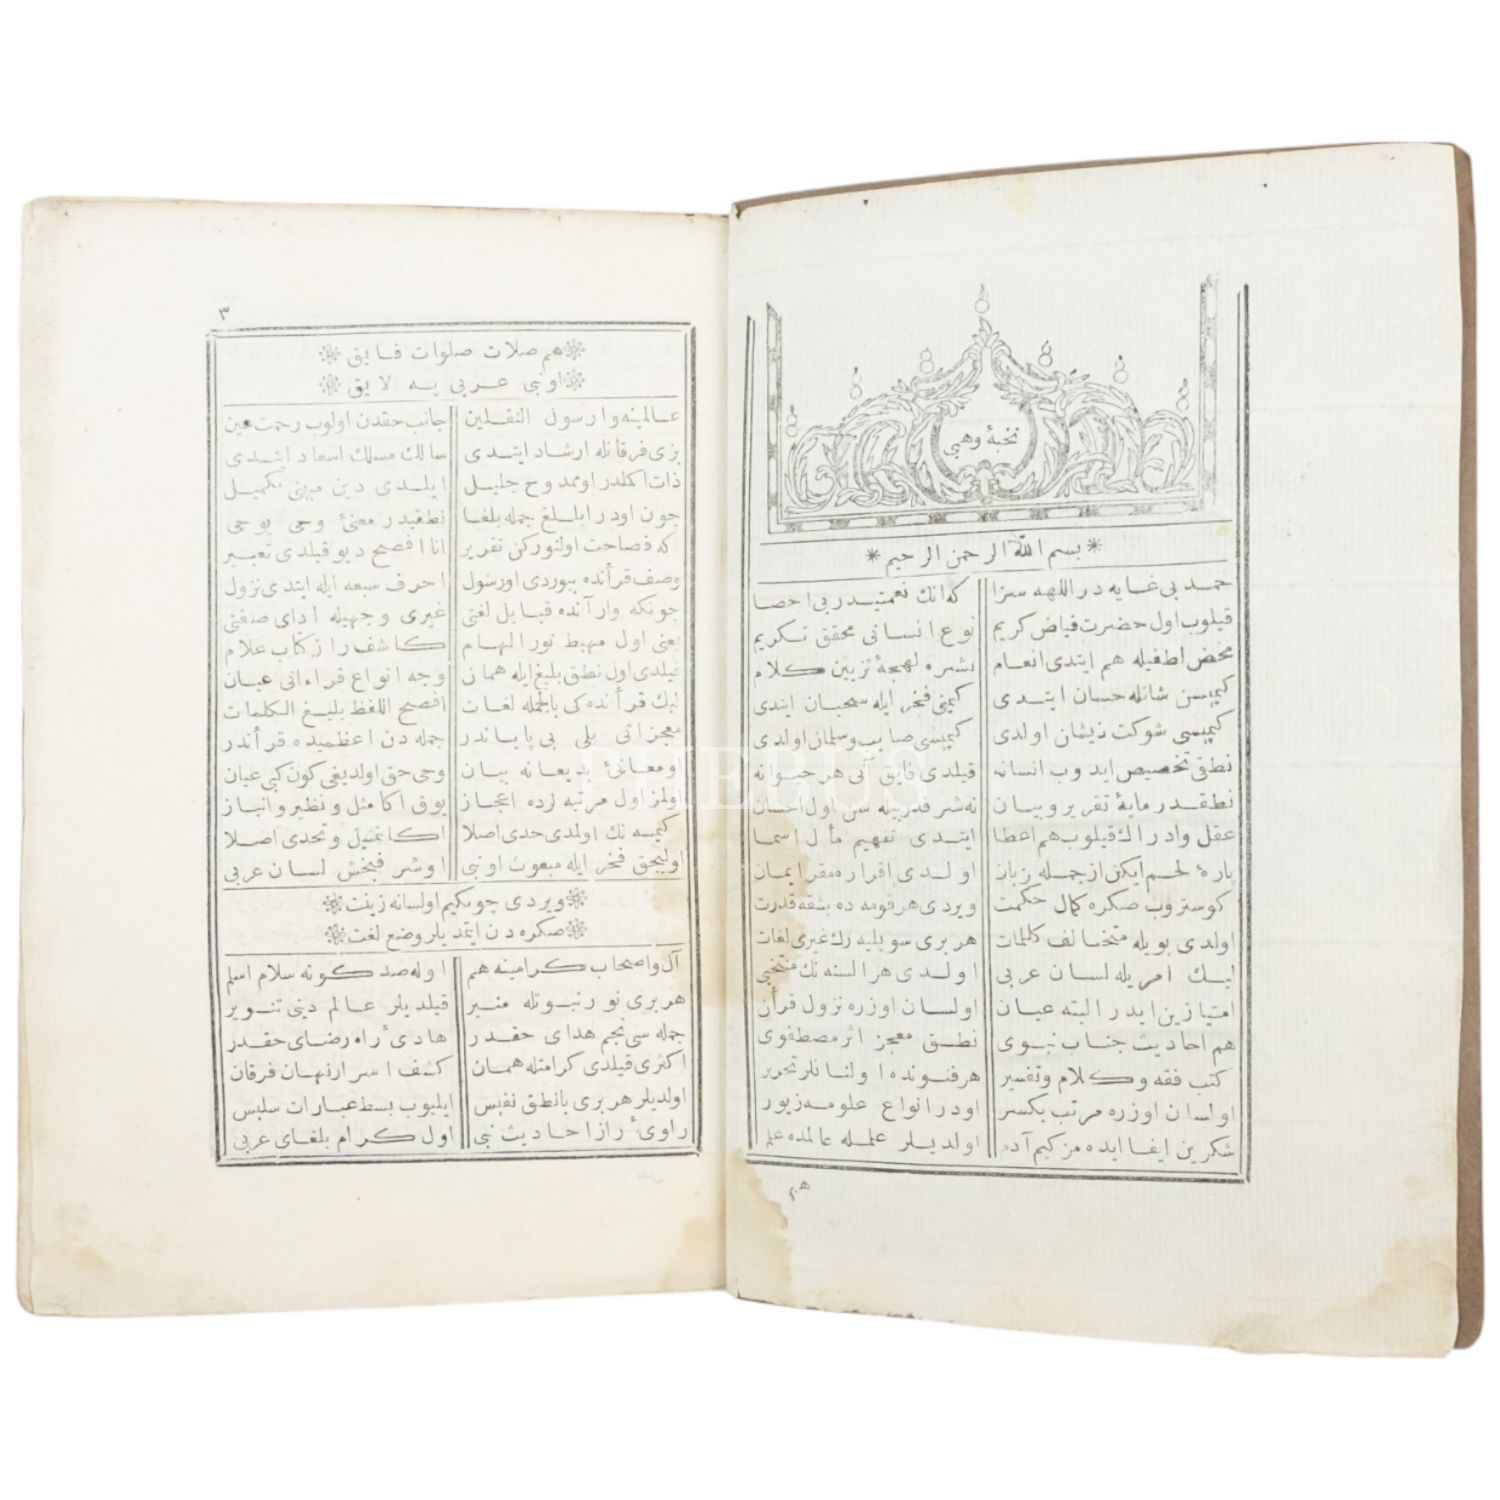 نخبهٔ وهبی
بسم الله الرحمن الرحیم
حمد بی غایه در اللهه سزا که انك نعمتیدر بی احصا
قیلوب اول حضرت فیاض کریم نوع انسانی محقق تکریم
محض لطفیله هم ایتدی انعام بشره لهجهٔ تزیین کلام
کیمیسن شانله حسان ایتدی کیمنی فخر ایله سحبان ایتدی
کیمیسی شوکت ذیشان اولدی کیمیسی صایب وسلمان اولدی
نطقی تخصیص ایدوب انسانه قیلدی فایق آنی هر حیوانه
نطقدر مایهٔ تقریر وبیان نه شر قدر بیله سن اول احسان
عقل وادراك قیلوب هم اعطا ایتدی تفهیم مأل اسما
پارهٔ لحم ایکن از جمله زبان اولدی اقراره مقر ایمان
کوستروب صکره کمال حکمت ویردی هر قومه ده بشقه قدرت
اولدی بویله متخالف کلمات هر بری سویلیه رك غیری لغات
لیك امریله لسان عربی اولدی هر السنه نك منتخبی
امتیازین ایدر البته عیان اولسان اوزره نزول قرأن
هم احادیث جناب نبوی نطق معجز اثر مصطفوی
کتب فقه وکلام وتفسیر هر فنونده اولنانلر تحریر
اولسان اوزره مرتب یکسر اودر انواع علومه زیور
شکرین ایفا ایده مز کیم آدم اولدیلر علمله عالمده علم
هم
٣
هم صلات صلوات فایق
اونبی عربی یه لایق
عالمینه وارسول الثقلین جانب حقدن اولوب رحمت عین
بزی فرقانله ارشاد ایتدی سالك مسلك اسعاد ایتدی
ذات اکملدر اوممدوح جلیل ایلدی دین مبینی تکمیل
چون اودر ابلغ جمله بلغا نطقیدر معنیٔ وحی یوحی
که فصاحت اولنورکن تقریر انا افصح دیو قیلدی تعبیر
وصف قرأنده بیوردی اورسول احرف سبعه ایله ایتدی نزول
چونکه وار آنده قبایل لغتی غیری وجهیله ادای صفتی
یعنی اول مهبط نور الهام کاشف راز کتاب علام
قیلدی اول نطق بلیغ ایله همان وجه انواع قراءاتی عیان
لیك قرأنده کی بالجمله لغات افصح اللفظ بلیغ الکلمات
معجزاتی بلی بی پایاندر جمله دن اعظمیده قرأندر
ومعانیٔ بدیعانه بیان وحی حق اولدیغی کون کبی عیان
اولمز اول مرتبه لرده اعجاز یوق اکا مثل ونظیر وانباز
کیمسه نك اولمدی حدی اصلا اکا تمثیل وتحدی اصلا
اولیجق فخر ایله مبعوث اونبی اوشرفبخش لسان عربی
ویردی چونکیم اولسانه زینت
صکره دن ایتدیلر وضع لغت
آل واصحاب کرامینه هم اوله صد کونه سلام اسلم
هر بری نور نبوتله منیر قیلدیلر عالم دینی تنویر
جمله سی نجم هدای حقدر هادیٔ راه رضای حقدر
اکثری قیلدی کرامتله همان کشف اسرار نهان فرقان
اولدیلر هر بری بانطق نفیس ایلیوب بسط عبارات سلیس
راویٔ راز احادیث نبی اول کرام بلغای عربی